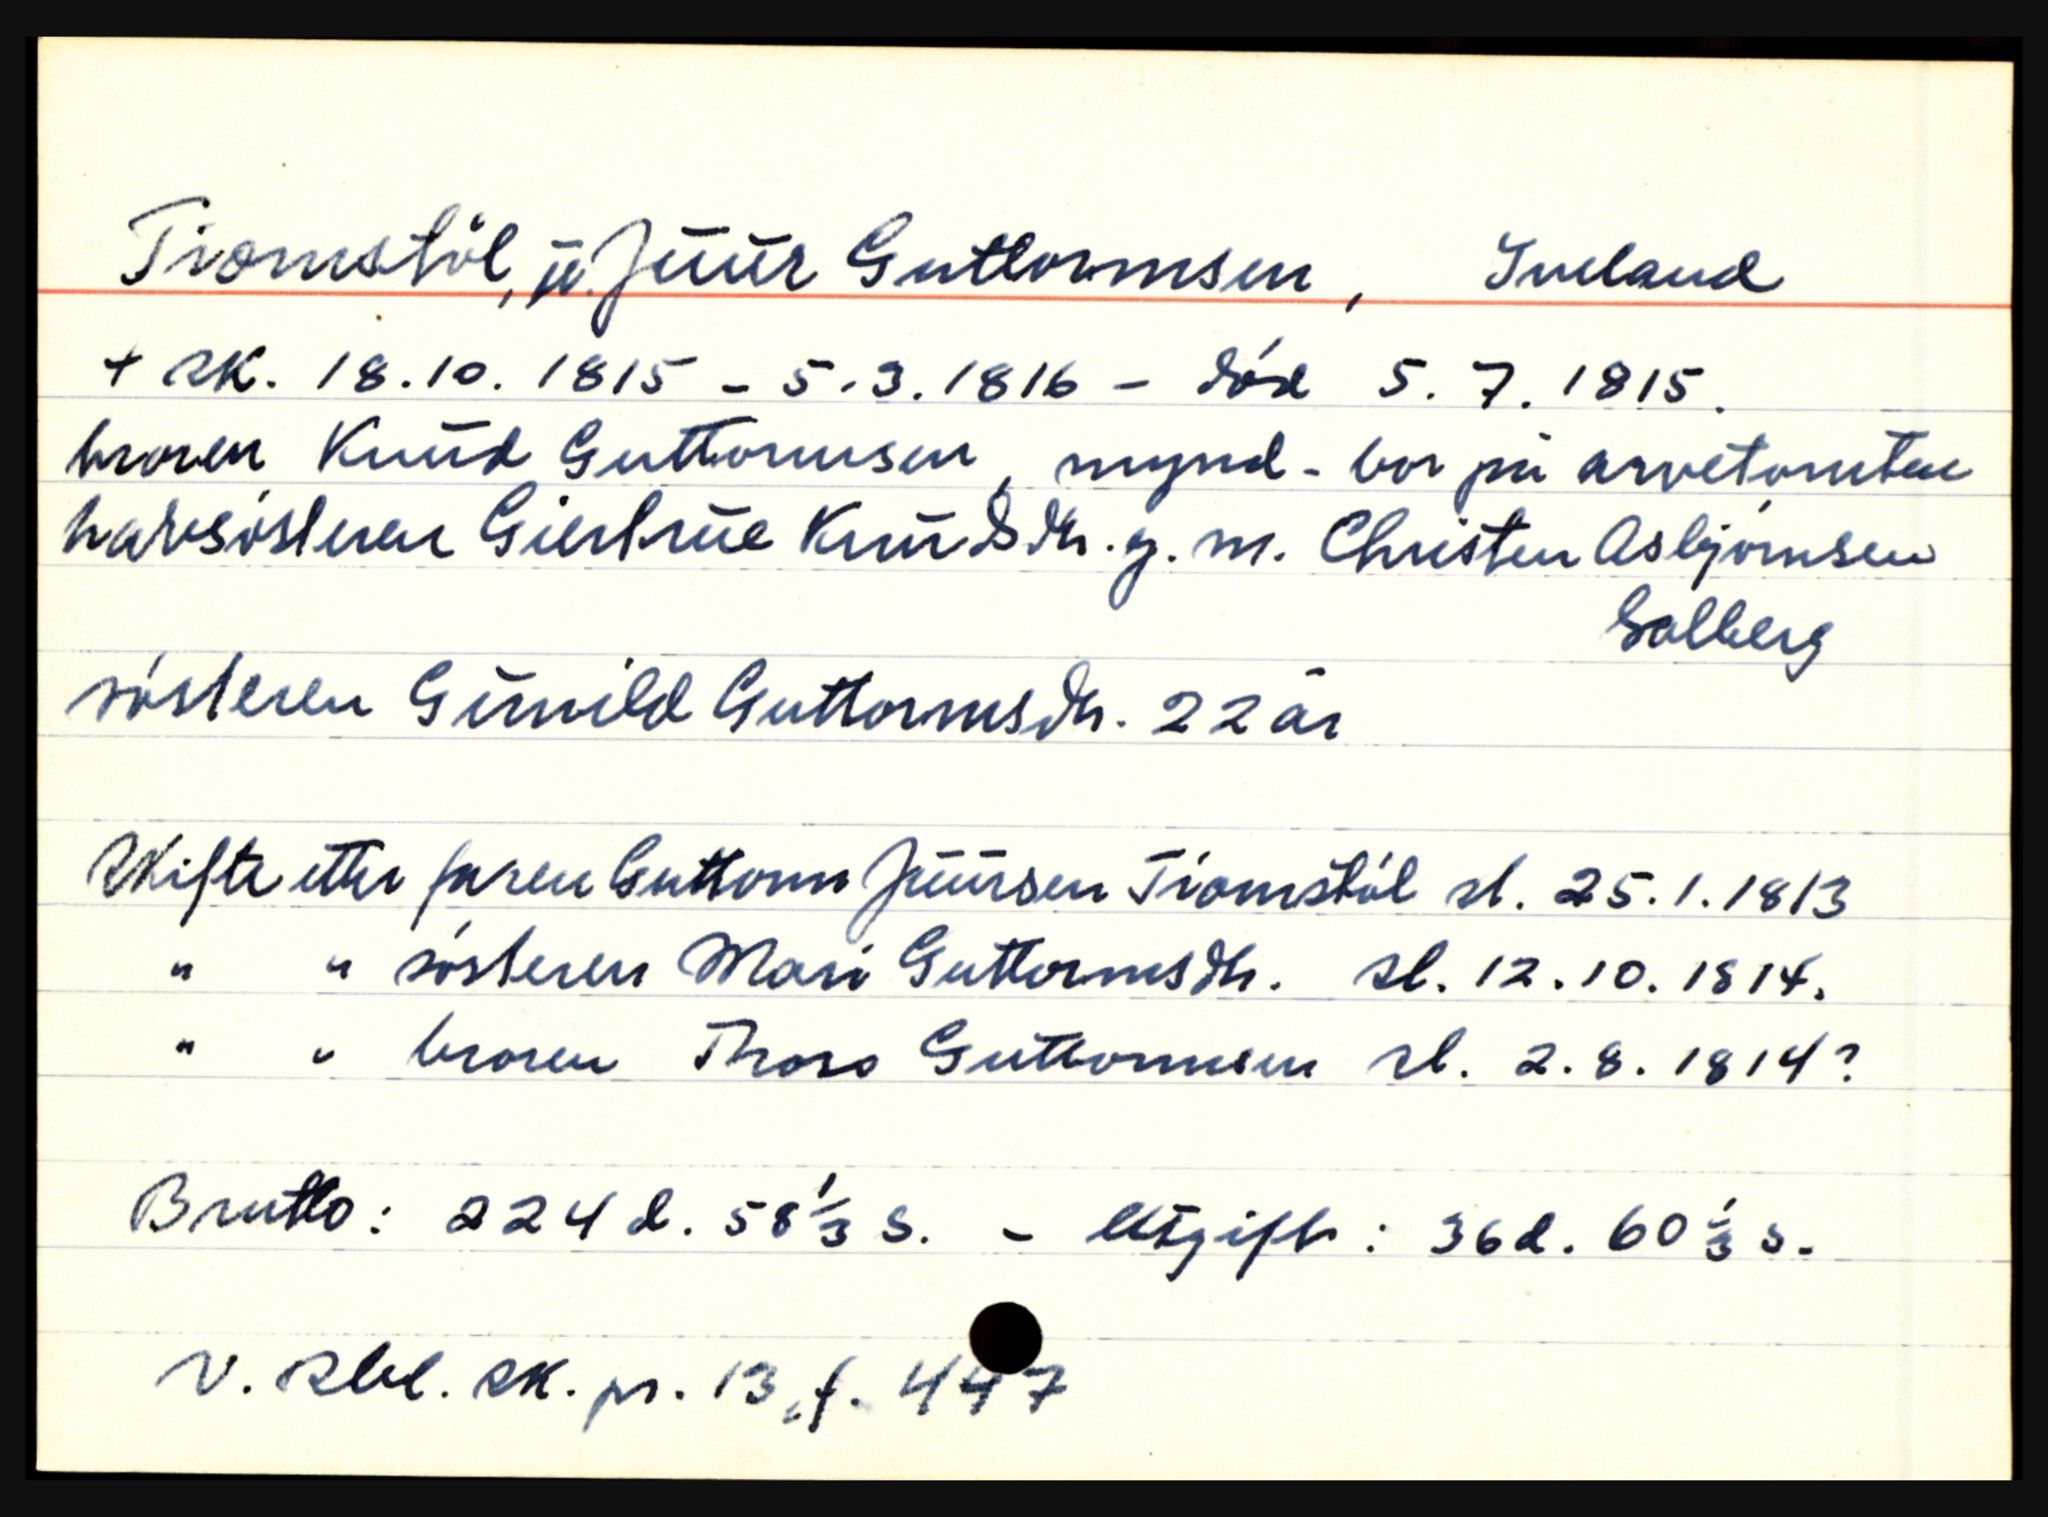 Tiomstöl, u. Juur Guttormsen, Iveland
+ sk. 18.10.1815 - 5.3.1816 - död 5.7.1815.
broren Knud Guttormsen, mynd - bor på arvetomten
halvsösteren Giertrue Knudsdtr. g. m. Christen Asbjörnsen
Solberg
sösteren Gunild Guttormsdtr. 22 år
Skifte etter faren Guttorm Juursen Tiomstöl sl. 25.1.1813
" " sösteren Mari Guttormsdtr. sl. 12.10.1814.
" " broren Thors Guttormsen sl. 2.8.1814?
Brutto: 224 d. 58 1/3 s. - Utgift: 36 d. 60 1/3 s.
V. Rbd. sk. pr. 13, f. 447